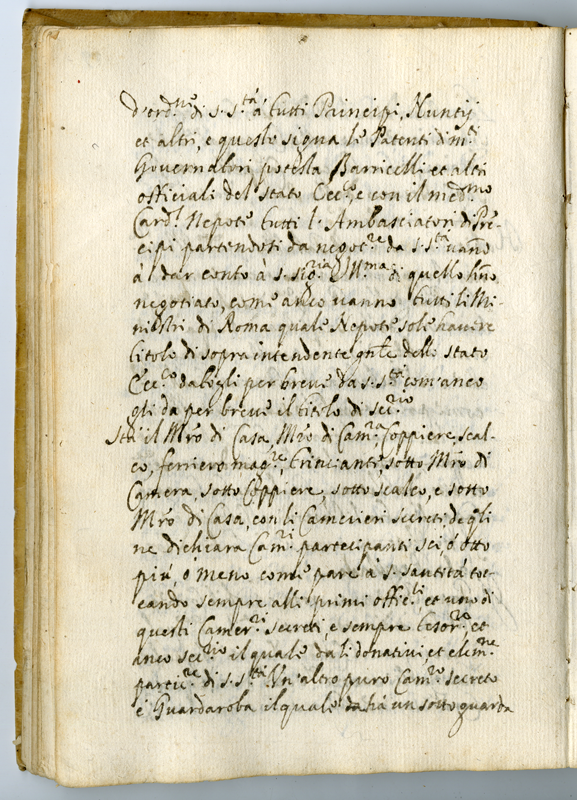 d'ord.ne di S. S.tà à tutti Principi, Nuntij
et altri, e questo signa le Patenti di m.ti
Governatori potestà Barricelli et altri
officiali del stato Ecc.co, e con il med.mo
Card.l Nepote tutti l'Ambasciatori di Pre-
cipi partendosi da negot.re da S. S.tà vanno
à dar conto à S. Sig.ria Ill.ma di quello hano
negotiato, come anco vanno tutti li Mi-
nistri di Roma quale Nepote sole havere
titolo di sopraintendente gnle dello stato
Ecc.co datogli per breve da S. S.tà com'anco
gli da per breve il titolo di sec.rio
Stà il Mro di Casa, Mro di Cam.ra, Coppiere, scal-
co, ferriero mag.re, trincianti, sotto Mro di
Camera, sotto Coppiere, sotto scalco, e sotto
Mro di Casa, con li Camerieri secreti, de q.li
ne dichiara Cam.ri partecipanti sei, ò otto
più, ò meno come pare à S. Santità toc-
cando sempre alli primi offic.li et uno di
questi Camer.ri secreti, e sempre tesor.ro et
anco sec.rio il quale da li donativi et elem.ne
partic.re di S. S.tà Un'altro puro Cam.ro secreto
è Guardaroba il quale da hà un sotto guarda